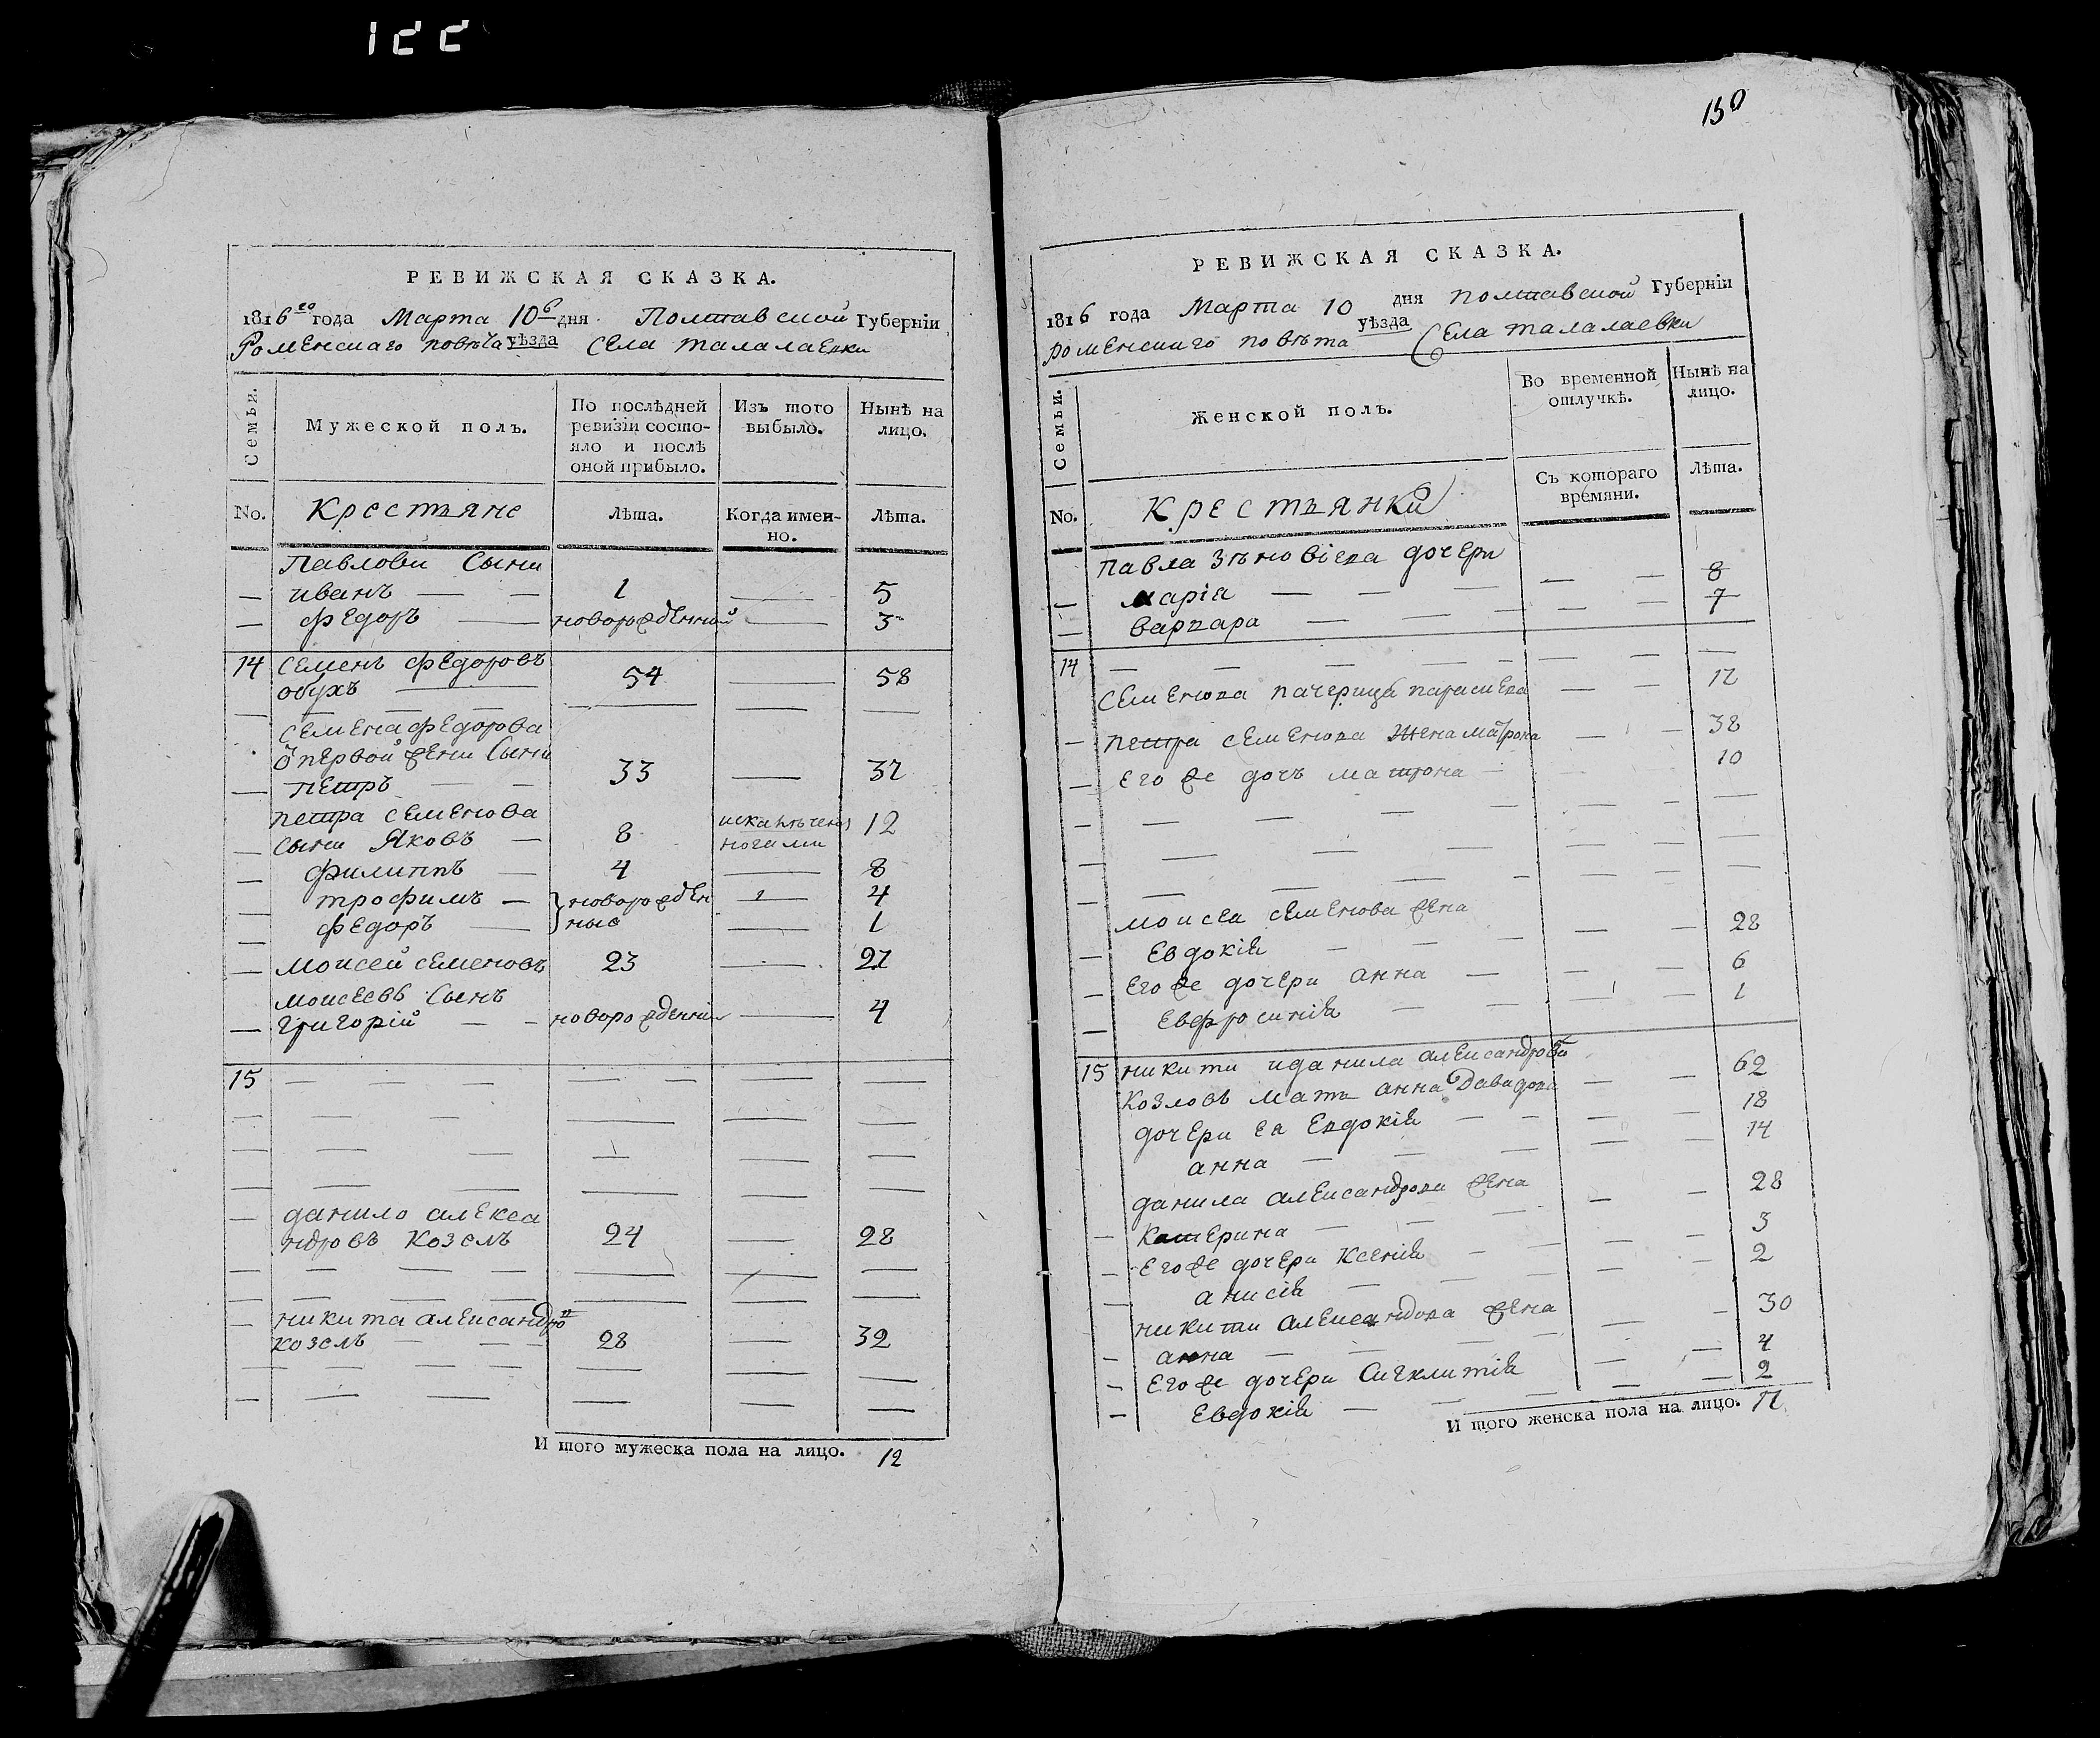 122
РЕВИЖСКАЯ СКАЗКА.
1816го года Марта 10го дня Полтавской Губерніи
Роменскаго повѣта уѣзда Села талалаевки
Семьи.
Мужеской полъ.
По послѣдней ревизіи состо-
яло и послѣ
оной прибыло.
Изъ того
выбыло.
Нынѣ на
лицо.
No.
Крестьяне
Лѣта.
Когда имен-
но.
Лѣта.
Павлови Сыни
иванъ — — 1 — 5
федоръ — новорожденний — 3
14 Семенъ федоровъ
обухъ — 54 — 58
Семена федорова
первой жени Сыни
петръ — — 33 — 37
петра семенова
сыни Яковъ — 8 ногами 12
филиппъ — 4 — 8
трофимъ — } новорожден — 4
федоръ — ные — 1
Моисей семеновъ 23 — 27
моисеевъ Сынъ
григорій — — новорожденній — 4
15 — — — — — — — —
данило алекса
ндровъ козелъ 24 — 28
никита александровъ
козелъ — — 28 — 32
И того мужеска пола на лицо. 12
150
РЕВИЖСКАЯ СКАЗКА.
1816 года Марта 10 дня полтавской Губерніи
роменского повѣта уѣзда Села талалаевки
Семьи.
Женской полъ.
Во временной
отлучкѣ.
Нынѣ на
лицо.
Съ котораго
времяни.
Лѣта.
No.
Крестьянки
павла зѣновіева дочери
марія — — — 8
варвара — — — 7
14 — — — — —
семенова пачерица параскева — — 17
петра семенова жена матрона — — 38
его же дочъ матрона — 10
моисея семенова жена
Евдокія — — — 28
его же дочери анна — — — 6
Евфросинія — — 1
15 никити и данила александрови
козловъ мать анна давидова — — 62
дочери ея Евдокія — — 18
анна — — — 14
данила александрова жена
катерина — — — 28
его же дочери ксенія — — 3
анисія — — 2
никити александова жена
анна — — — 30
его же дочери Сигклитія — — 4
Евдокія — — 2
И того женска пола на лицо. 17